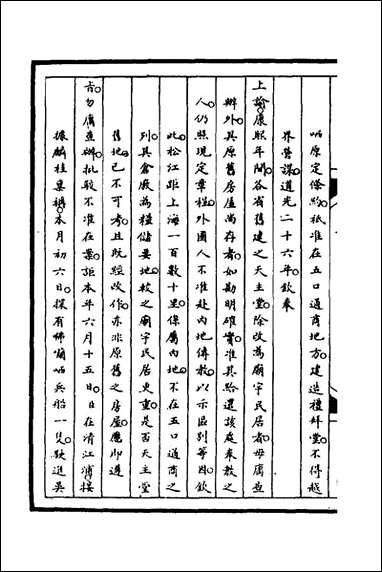 㕵原定條約祇准在五口通商地方建造禮拜堂不得越
界營謀道光二十六年欽奉
上諭康熙年間各省舊建之天主堂除改為廟宇民居者毋庸查
辦外其原舊房屋尚存者如勘明確實准其給還該處奉教之
人仍照現定章程外國人不准赴內地傳教以示區別等因欽
此松江距上海一百數十里係屬內地不在五口通商之
列其倉廒為糧儲要地較之廟宇民居更重是否天主堂
舊地已不可考且既經改作亦非原舊之房屋應即遵
旨勿庸查辦批駁不准在案詎本年六月十五日日在清江浦接
據麟桂吳稟本月初六日探有㖠嘣㕵兵船一隻駛進吳